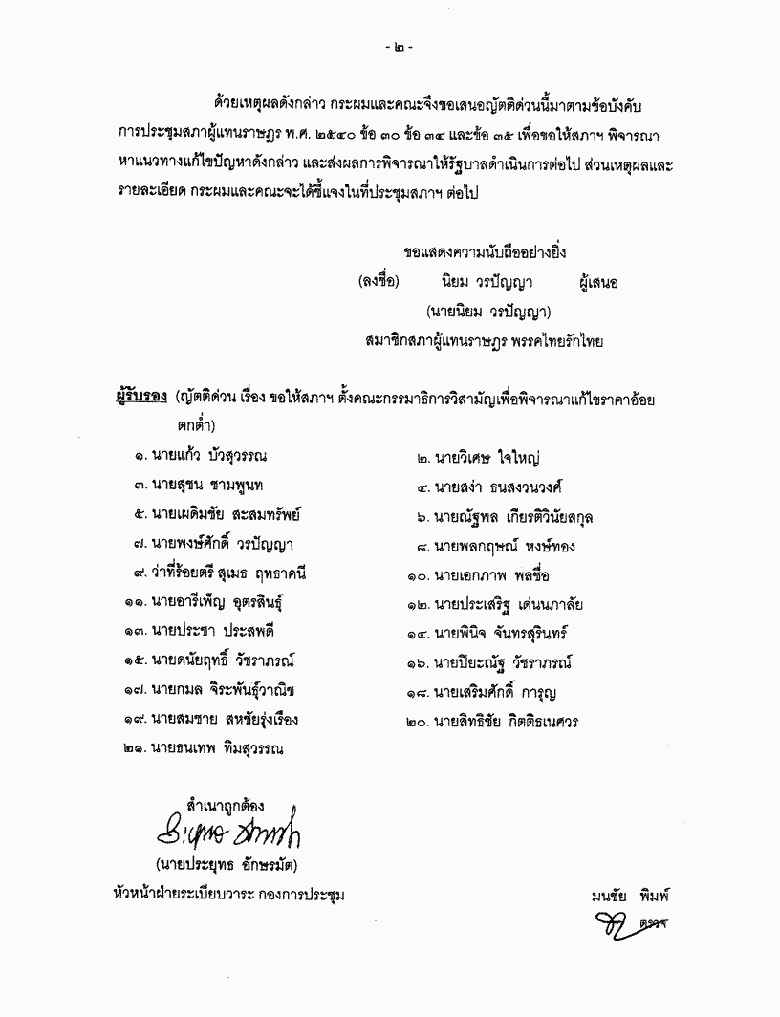 - ๒ -
ด้วยเหตุผลดังกล่าว กระผมและคณะจึงขอเสนอญัตติด่วนนี้มาตามข้อบังคับ
การประชุมสภาผู้แทนราษฎร พ.ศ. ๒๕๔๐ ข้อ ๓๐ ข้อ ๓๔ และข้อ ๓๕ เพื่อขอให้สภาฯ พิจารณา
หาแนวทางแก้ไขปัญหาดังกล่าว และส่งผลการพิจารณาให้รัฐบาลดำเนินการต่อไป ส่วนเหตุผลและ
รายละเอียด กระผมและคณะจะได้ชี้แจงในที่ประชุมสภาฯ ต่อไป
ขอแสดงความนับถืออย่างยิ่ง
(ลงชื่อ) นิยม วรปัญญา ผู้เสนอ
(นายนิยม วรปัญญา)
สมาชิกสภาผู้แทนราษฎร พรรคไทยรักไทย
ผู้รับรอง (ญัตติด่วน เรื่อง ขอให้สภาฯ ตั้งคณะกรรมาธิการวิสามัญเพื่อพิจารณาแก้ไขราคาอ้อย
ตกต่ำ)
๑. นายแก้ว บัวสุวรรณ ๒. นายวิเศษ ใจใหญ่
๓. นายสุชน ชามพูนท ๔. นายสง่า ธนสงวนวงศ์
๕. นายเผดิมชัย สะสมทรัพย์ ๖. นายณัฐพล เกียรติวินัยสกุล
๗. นายพงษ์ศักดิ์ วรปัญญา ๘. นายพลกฤษณ์ หงษ์ทอง
๙. ว่าที่ร้อยตรี สุเมธ ฤทธาคนี ๑๐. นายเอกภาพ พลซื่อ
๑๑. นายอารีเพ็ญ อุตรสินธุ์ ๑๒. นายประเสริฐ เด่นนภาลัย
๑๓. นายประชา ประสพดี ๑๔. นายพินิจ จันทรสุรินทร์
๑๕. นายดนัยฤทธิ์ วัชราภรณ์ ๑๖. นายปิยะณัฐ วัชราภรณ์
๑๗. นายกมล จิระพันธุ์วาณิช ๑๘. นายเสริมศักดิ์ การุญ
๑๙. นายสมชาย สหชัยรุ่งเรือง ๒๐. นายสิทธิชัย กิตติธเนศวร
๒๑. นายธนเทพ ทิมสุวรรณ
สำเนาถูกต้อง
(นายประยุทธ อักษรมัต)
หัวหน้าฝ่ายระเบียบวาระ กองการประชุม
มนชัย พิมพ์
ตรวจ